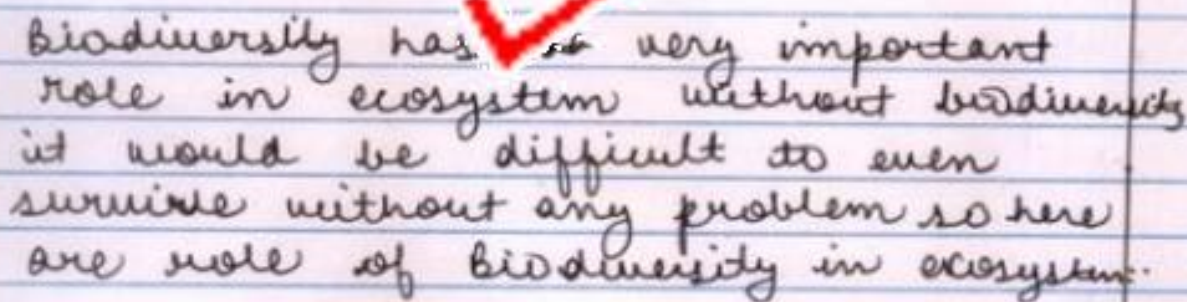 Biodiversity has a very important
role in ecosystem without biodiversity
it would be difficult to even
survive without any problem so here
are role of Biodiversity in ecosystem.